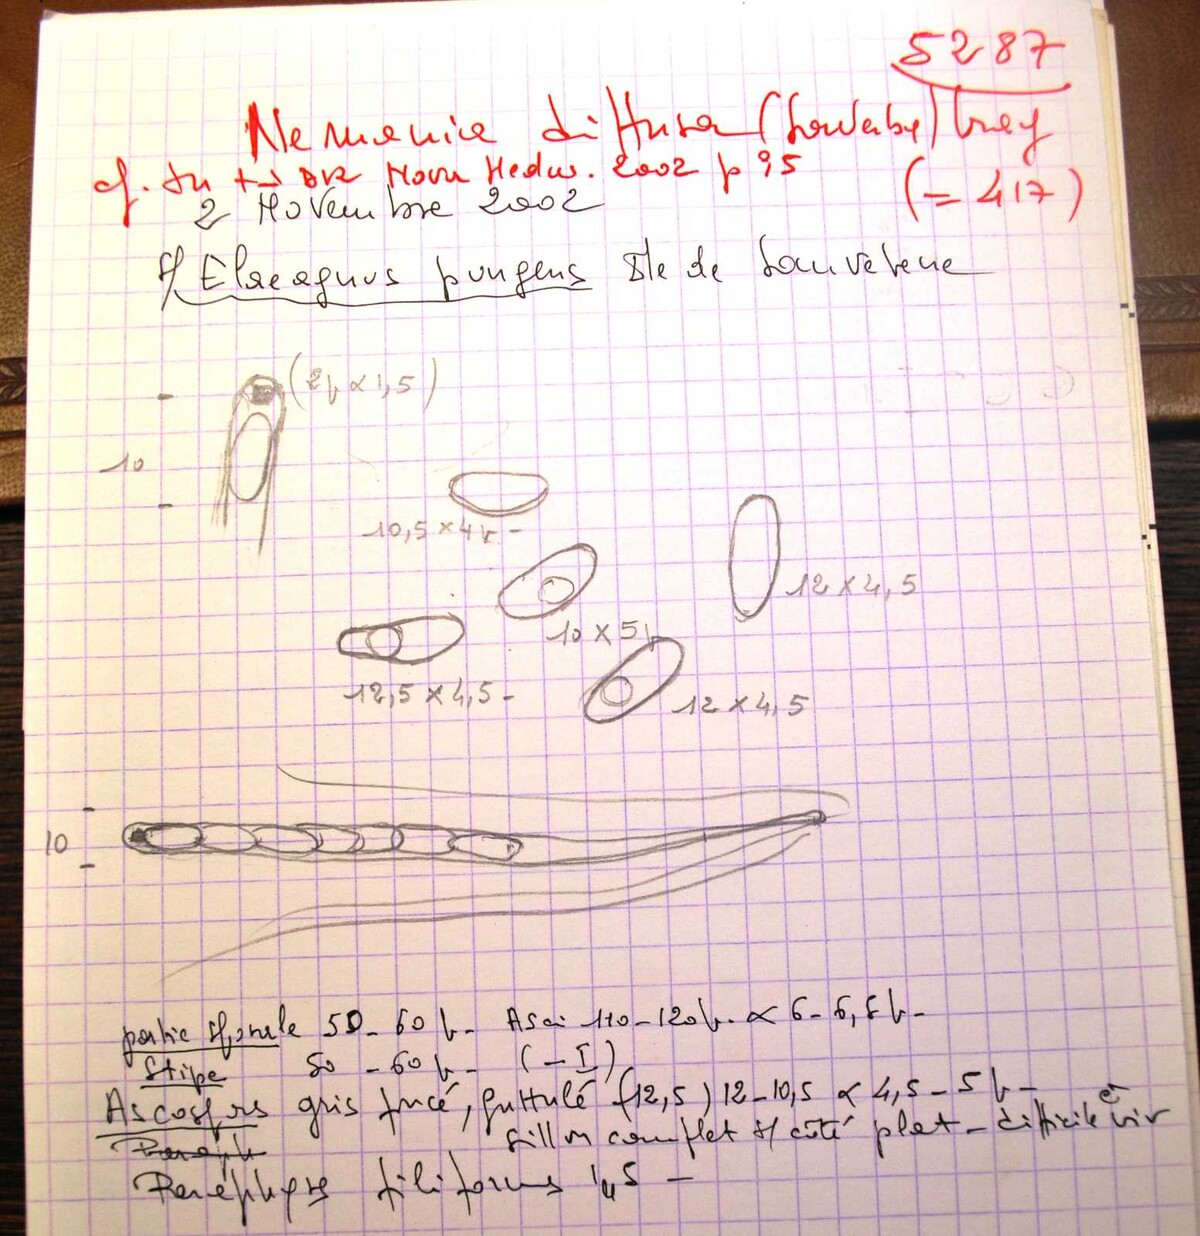 5287
Nemania diffusa (Sowerby) Gray
cf. Nova Hedw. 2002 p 95
(= 417)
2 Novembre 2002
s/ Elaeagnus pungens Ile de
(2µ × 1,5)
10
10,5 × 4µ -
12 × 4,5
10 × 5µ
12,5 × 4,5 -
12 × 4,5
10
partie sporale 50 - 60 µ - Asci 110 - 120µ × 6 - 6,5 µ -
Stipe 50 - 60 µ - (- I)
Ascospres gris foncé, guttulé (12,5) 12 - 10,5 × 4,5 - 5 µ -
Paraph sillon complet s/ côté plat - difficile à voir
Paraphyses filiformes 1,5 -